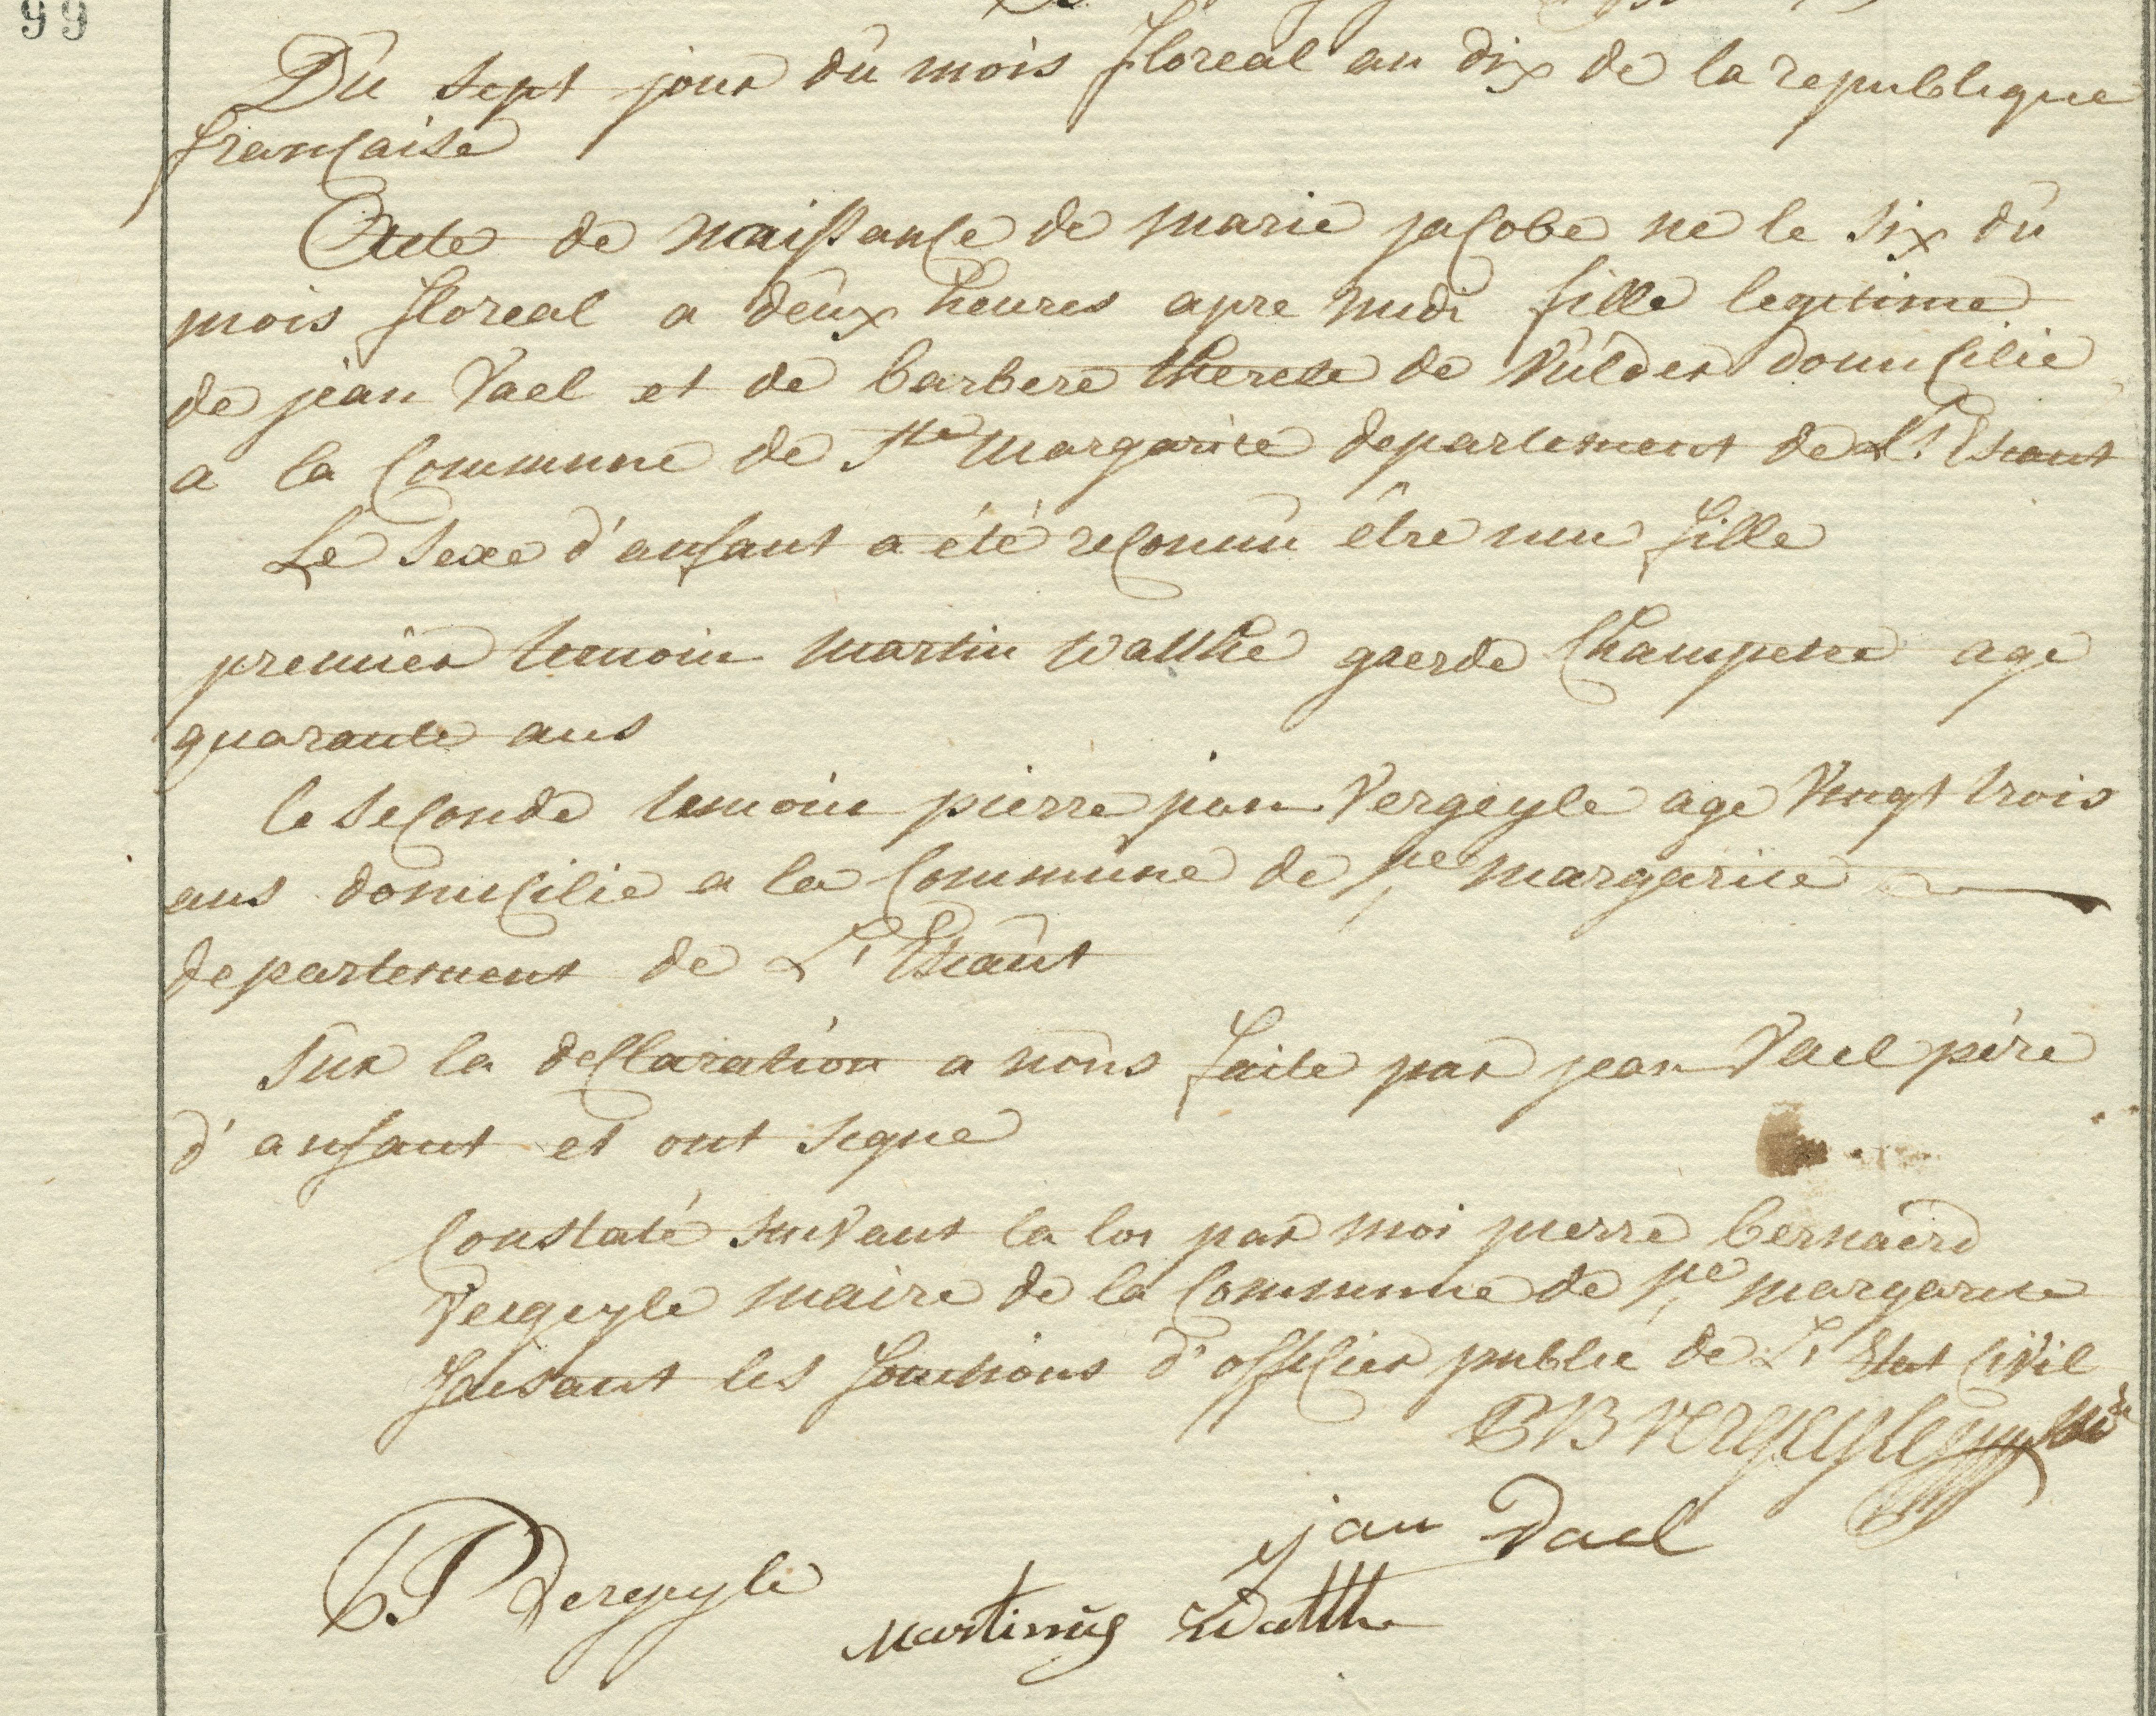 99
Du sept jour du mois floreal an dix de la republique
française
Acte de naissance de marie jacobe ne le six du
mois floreal a deux heures apre midi fille legitime
de jean Vael et de barbere therese de Vulder domicilie
a la Commune de Ste margarite departement de L'Escaut
Le sexe d'anfant a été reconnu être une fille
premier temoin martin Watthé gaerde Champetre age
quarante ans
le seconde temoin pierre jean Vergeyle age Vingt trois
ans domicilie a la Commune de Ste margarite
departement de L'Escaut
Sur la declaration a nous faite par jean Vael pére
d'anfant et ont signe
Constaté suivant la loi par moi pierre bernaerd
Vergeyle maire de la Commune de Ste margarite
faisant les fonctions d'officier public de L'Etat Civil
PB Vergeyle
jan Vael
PJ Vergeyle
Martinus Watthe